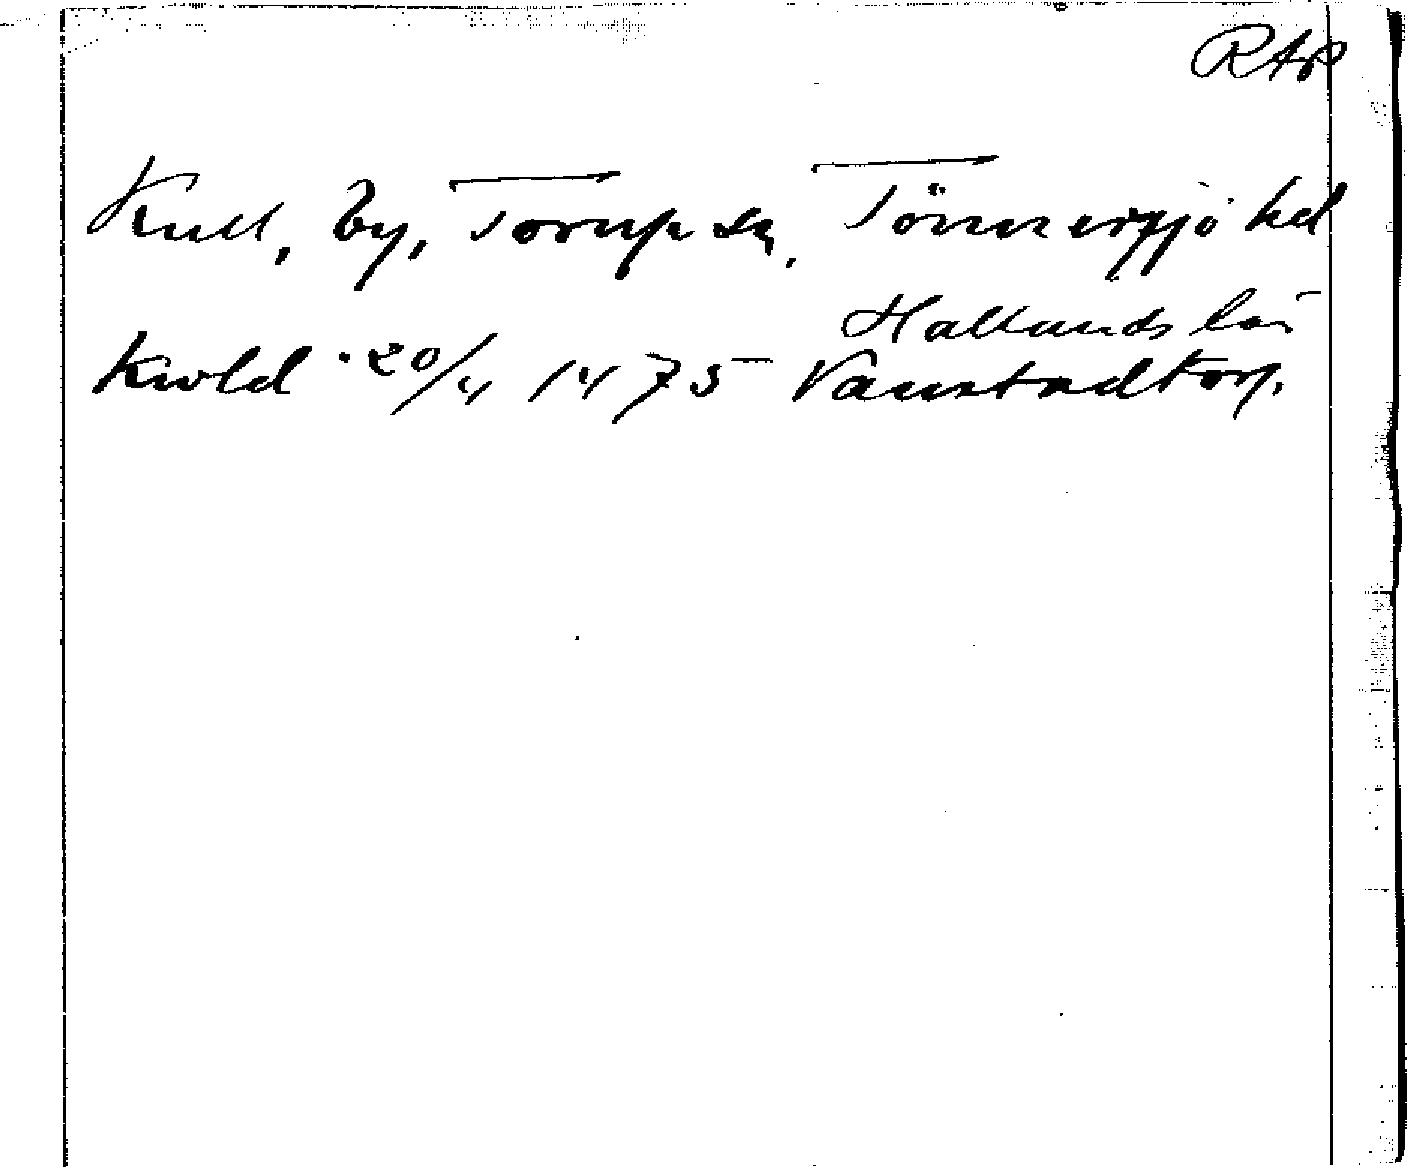 RAP
Kull, by, Torup sn, Tönnersjö hd
Hallands län
Kwld 20/4 1475 Vanstadtorp.